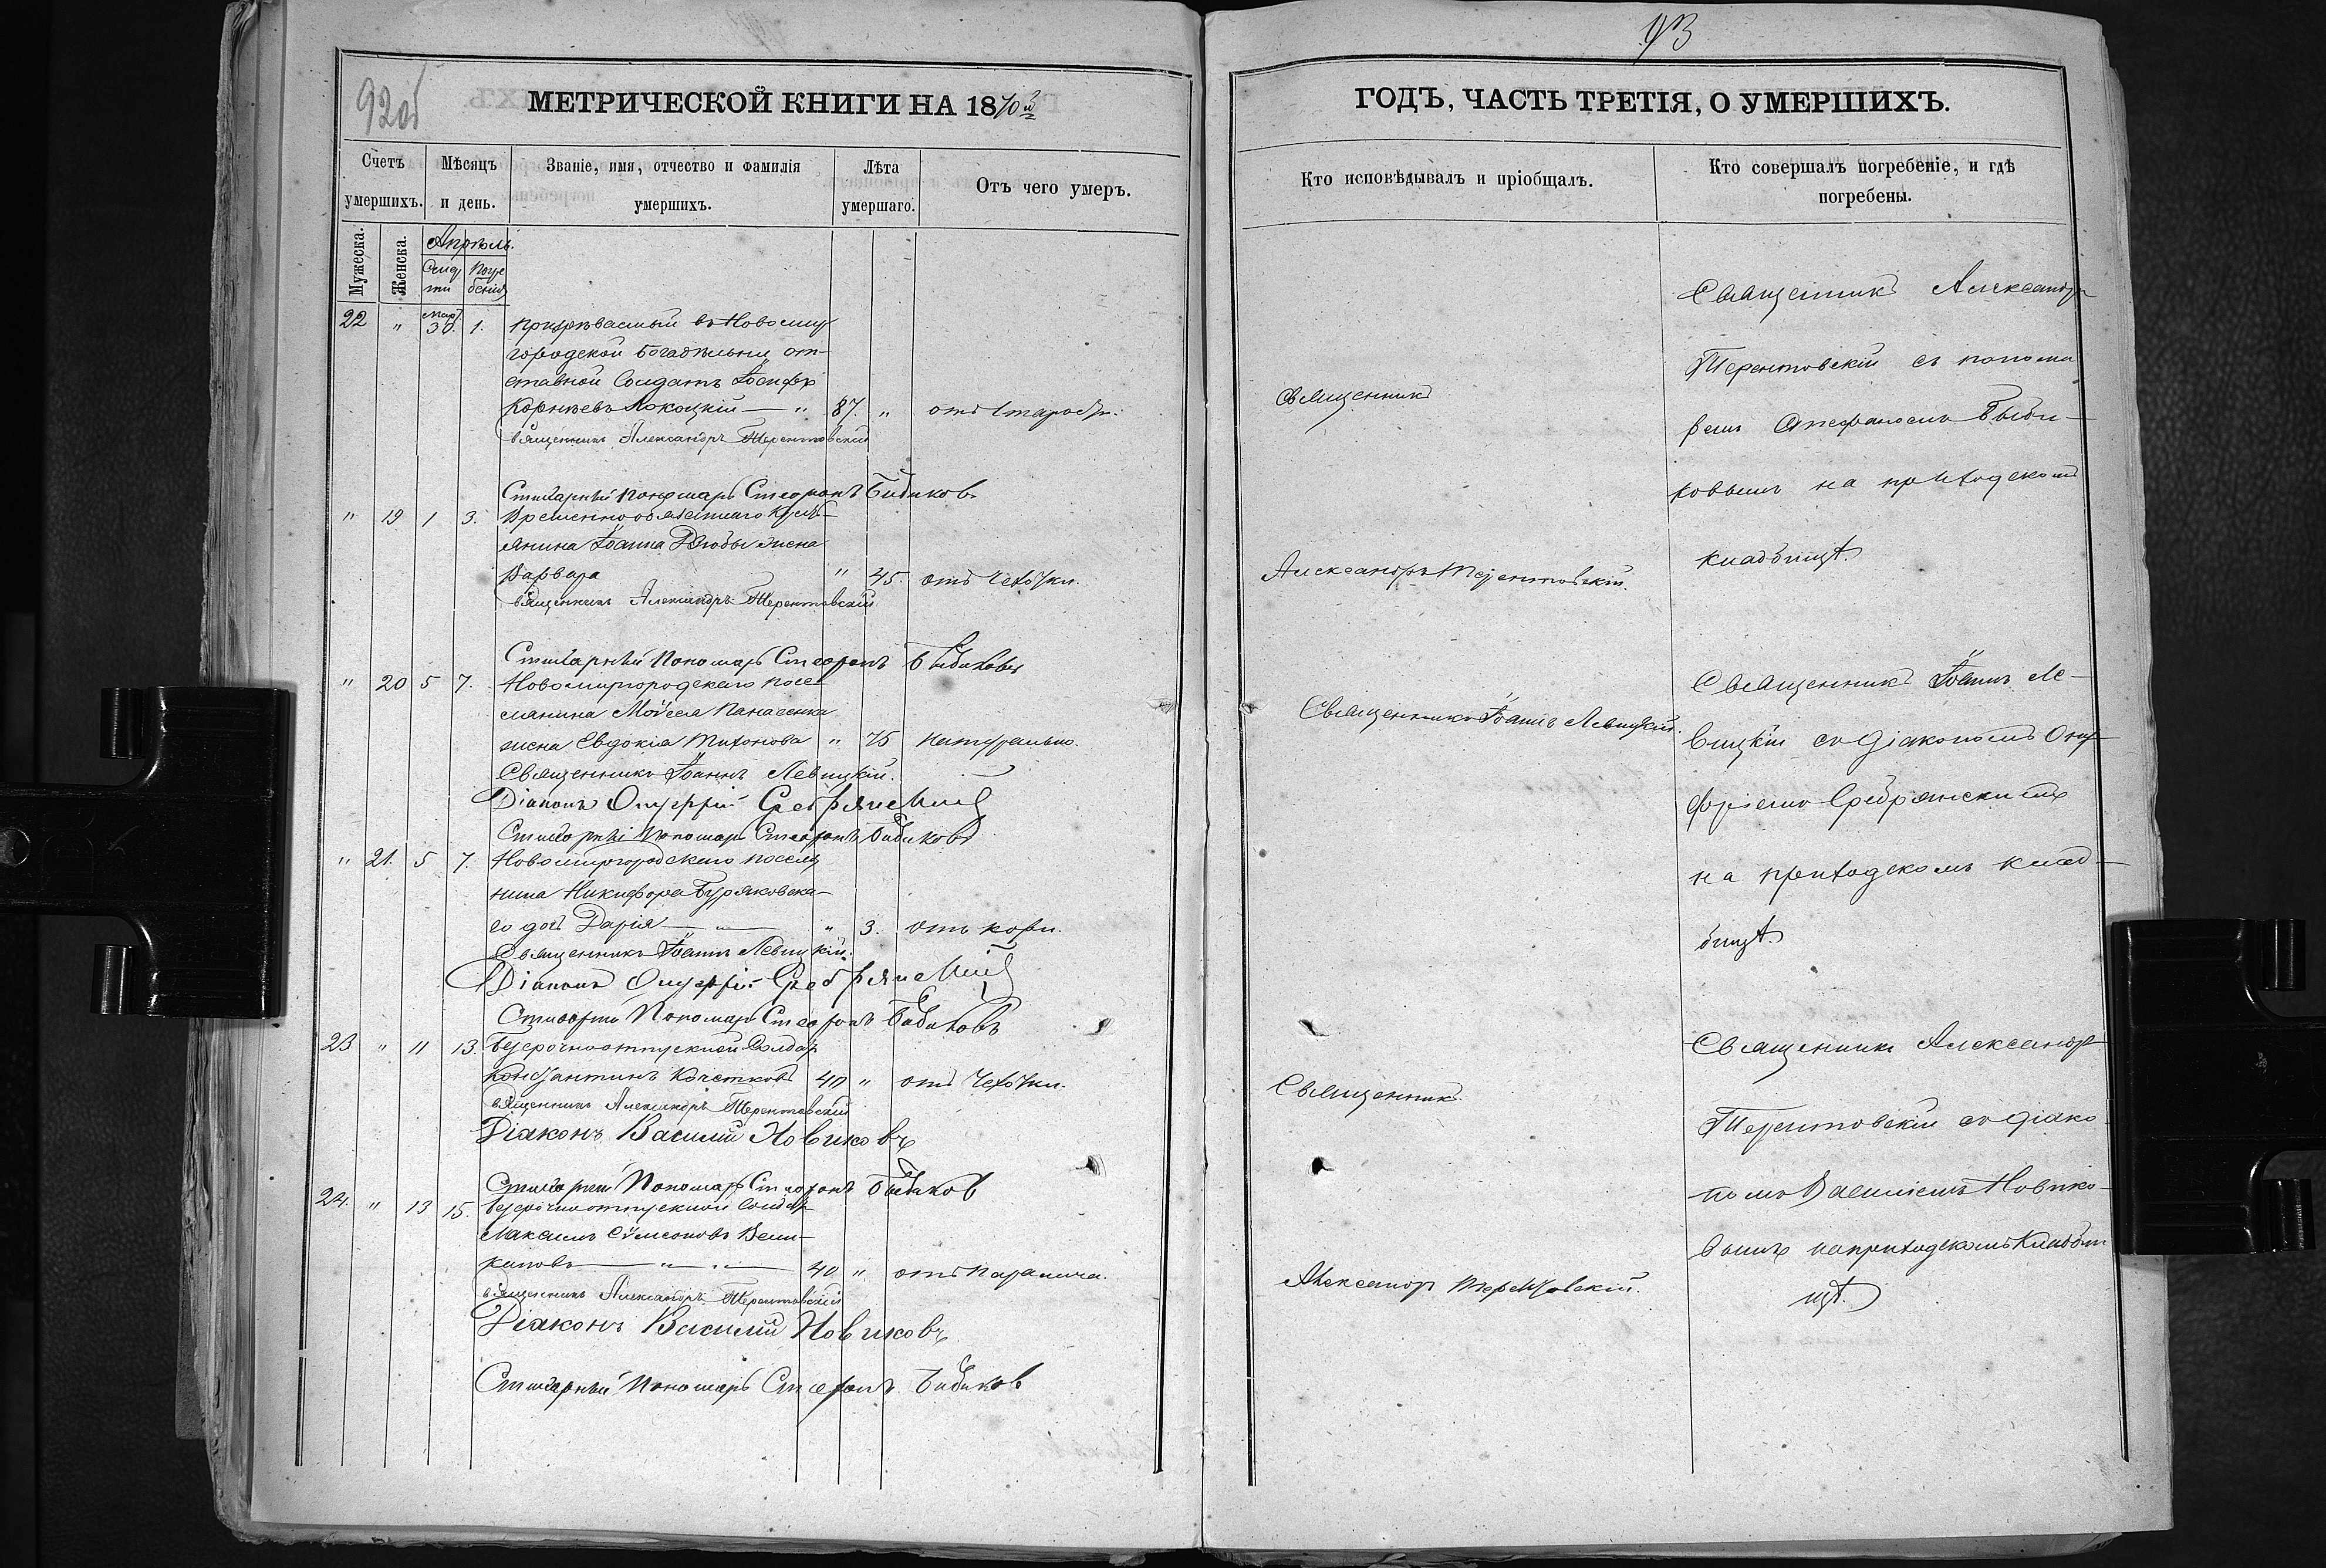 92об
МЕТРИЧЕСКОЙ КНИГИ НА 1870й
Счетъ умершихъ.
Мѣсяцъ и день.
Званіе, имя, отчество и фамилія умершихъ.
Лѣта умершаго.
Отъ чего умеръ.
Мужеска.
Женска.
Апрѣль.
Смерти
Погребенія
22 " Март. 30. 1. Призрѣваемый въ Новомир
городской Богадѣльни от-
ставной Солдатъ Іосифъ
Корнѣевъ Локоцкій — " 87. " отъ старости.
Священникъ Александръ Терентовскій
Стихарный Пономарь Стефанъ Бибиковъ
" 19 1 3. Временнообязаннаго Кресть-
янина Іоанна Дзюбы жена
Варвара " 45. отъ чехотки.
Священникъ Александръ Терентовскій
Стихарный Пономарь Стефанъ Бибиковъ
" 20 5 7. Новомиргородскаго посе-
лянина Моисея Панасенка
жена Евдокія Тихонова " 75 натурально.
Священникъ Іоаннъ Левицкій.
Діаконъ Онуфрій Сребрянскій
Стихарный Пономарь Стефанъ Бибиковъ
" 21. 5 7. Новомиргородскаго поселя
нина Никифора Буряковска-
го дочь Дарія — " — " 3. отъ кори.
Священникъ Іоаннъ Левицкій.
Діаконъ Онуфрій Сребрянскій
Стихарный Пономарь Стефанъ Бибиковъ
23 " 11 13. Безсрочноотпускной Солдатъ
Константинъ Кочетковъ 40 " отъ чехотки.
Священникъ Александръ Терентовскій
Діаконъ Василій Новиковъ
Стихарный Пономарь Стефанъ Бибиков
24. " 13 15. Безсрочноотпускной Солдатъ
Максимъ Сѵмеоновъ Вели-
кановъ — " — " — 40 " отъ паралича.
Священникъ Александръ Терентовскій
Діаконъ Василій Новиковъ
Стихарный Пономарь Стефанъ Бибиков
93
ГОДЪ, ЧАСТЬ ТРЕТІЯ, О УМЕРШИХЪ.
Кто исповѣдывалъ и пріобщалъ.
Кто совершалъ погребеніе, и гдѣ погребены.
Священникъ
Александръ Терентовскій.
Священникъ Іоаннъ Левицкій.
Священникъ
Александръ Терентовскій.
Священникъ Александръ
Терентовскій съ понома
ремъ Стефаномъ Биби-
ковымъ на приходскомъ
кладбищѣ.
Священникъ Іоаннъ Ле-
вицкій съ діакономъ Онуф
фріемъ Сребрянскимъ
на приходскомъ клад-
бищѣ.
Священникъ Александръ
Терентовскій съ діако
номъ Василіемъ Новико-
вымъ на приходскомъ кладби
щѣ.